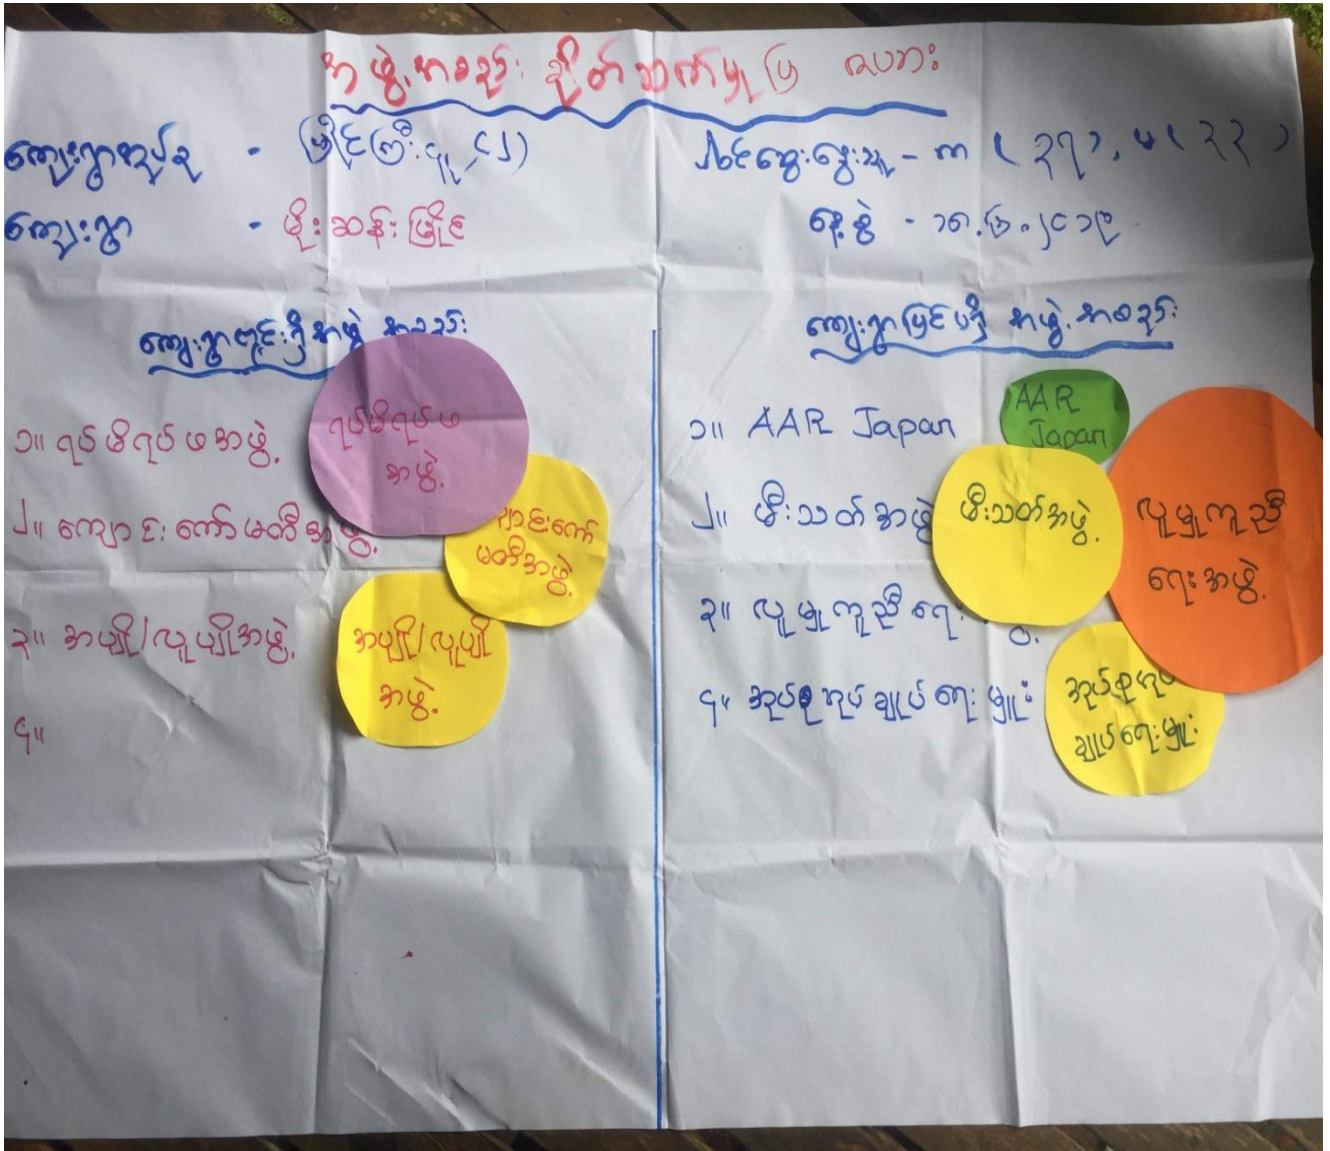 အဖွဲ့အစည်း ချိတ်ဆက်မှုပြ ဇယား
ကျေးရွာအုပ်စု - မြိုင်ကြီးငူ (၎၂)
ကျေးရွာ - မိုးဆန်းမြိုင်
ပါဝင်ဆွေးနွေးသူ - က (၃၇), မ (၃၃)
နေ့စွဲ - ၁၈.၆.၂၀၁၉
ကျေးရွာတွင်းရှိ အဖွဲ့အစည်း
၁။ ရပ်မိရပ်ဖအဖွဲ့
၂။ ကျောင်းကော်မတီအဖွဲ့
၃။ အပျို/လူပျိုအဖွဲ့
၄။
ရပ်မိရပ်ဖ
အဖွဲ့
ကျောင်းကော်
မတီအဖွဲ့
အပျို/လူပျို
အဖွဲ့
ကျေးရွာပြင်ပရှိ အဖွဲ့အစည်း
၁။ AAR Japan
၂။ မီးသတ်အဖွဲ့
၃။ လူမှုကူညီရေး
၄။ အုပ်စုအုပ်ချုပ်ရေးမှူး
AAR
Japan
မီးသတ်အဖွဲ့
လူမှုကူညီ
ရေးအဖွဲ့
အုပ်စုအုပ်
ချုပ်ရေးမှူး